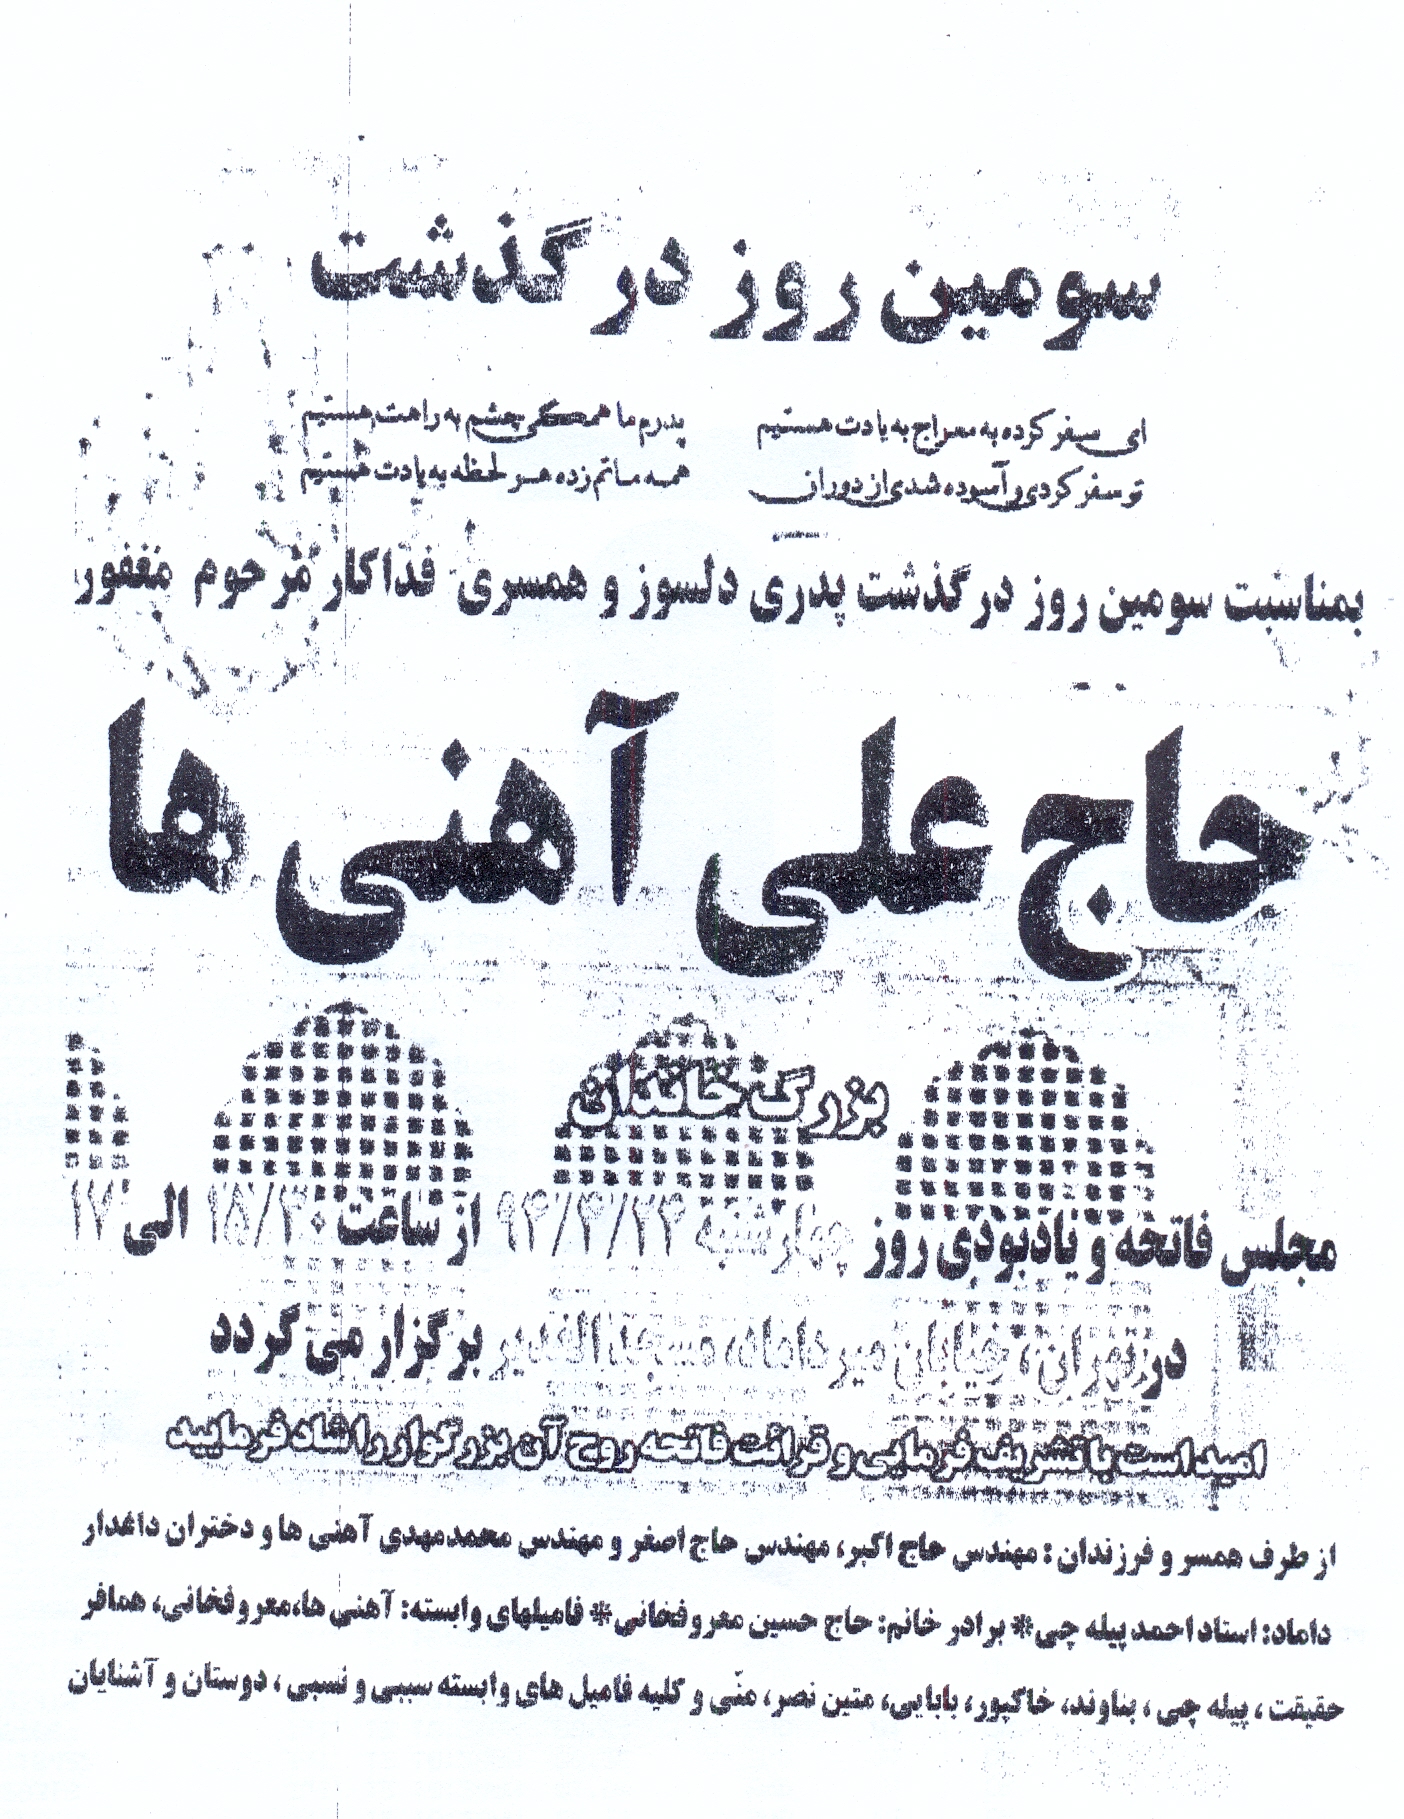 سومین روز درگذشت
ای سفر کرده به معراج به یادت هستیم پدرم ما همگی چشم به راهت هستیم
تو سفر کردی و آسوده شدی از دوران همه ماتم زده هر لحظه به یادت هستیم
بمناسبت سومین روز درگذشت پدری دلسوز و همسری فداکار مرحوم مغفور
حاج علی آهنی ها
بزرگ خاندان
مجلس فاتحه و یادبودی روز چهارشنبه ۹۴/۳/۲۴ از ساعت ۱۵/۳۰ الی ۱۷
در تهران، خیابان میرداماد، مسجد الغدیر برگزار می گردد
امید است با تشریف فرمایی و قرائت فاتحه روح آن بزرگوار را شاد فرمایید
از طرف همسر و فرزندان: مهندس حاج اکبر، مهندس حاج اصغر و مهندس محمدمهدی آهنی ها و دختران داغدار
داماد: استاد احمد پیله چی* برادر خانم: حاج حسین معروفخانی* فامیلهای وابسته: آهنی ها، معروفخانی، همافر
حقیقت، پیله چی، بناوند، خاکپور، بابایی، متین نصر، منّی و کلیه فامیل های وابسته سببی و نسبی، دوستان و آشنایان